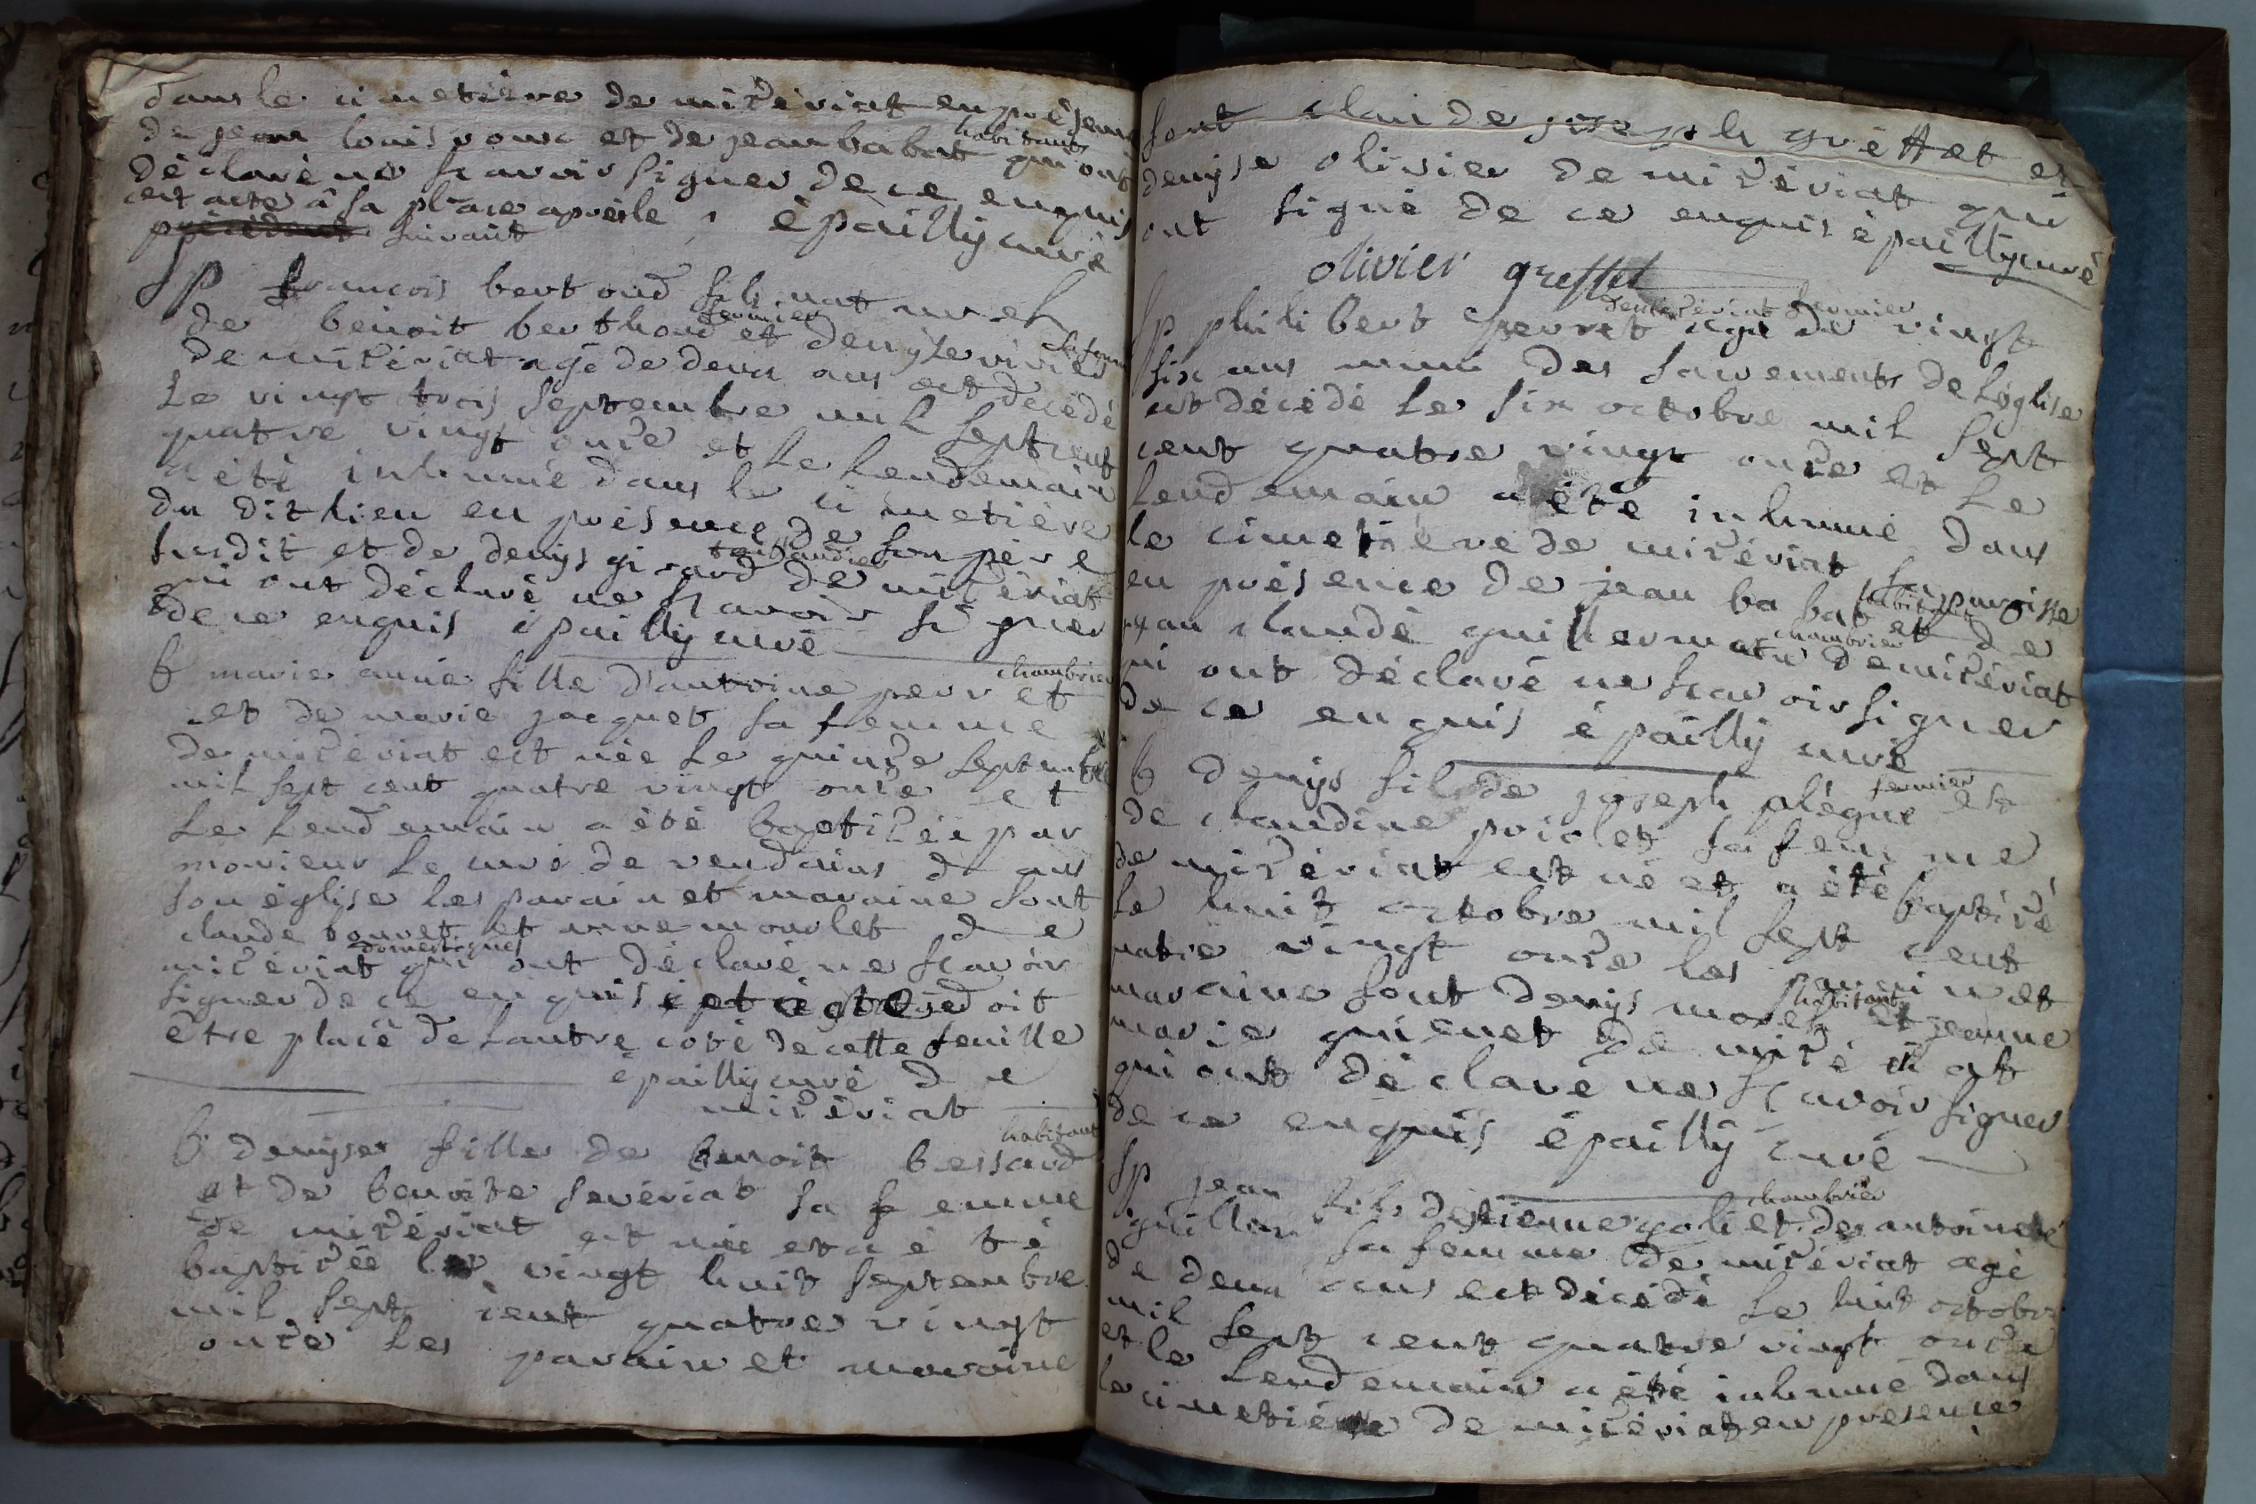 dans le cimetière de mizériat en présence
de jean louis roux et de jean babat habitants qui ont
déclaré ne scavoir signer de ce enquis
cet acte â sa place après le épailly curé
précédent suivant
Sp françois bertoud fils naturel
de benoit berthoud fermier et denyse vivier sa femme
de mizériat agé de deux ans est décédé
le vingt trois septembre mil sept cent
quatre vingt onze et le lendemain
a été inhumé dans le cimetière
du dit lieu en présence de son père
susdit et de denys girard taillandier de mizériat
qui ont déclaré ne scavoir signer
de ce enquis épailly curé
b marie anne fille d'antoine perret chambrier
et de marie jacquet sa femme
de mizériat est née le quinze septembre
mil sept cent quatre vingt onze et
le lendemain a été baptisée par
monsieur le curé de vendeins dans
son église les parain et maraine sont
claude bouvet et anne mourlet de
mizériat domestiques qui ont déclaré ne scavoir
signer de ce enquis et doit
être placé de lautre coté de cette feuille
épailly curé de
mizériat
b denyse fille de benoit bessard habitant
et de benoite sevériat sa femme
de mizériat est née et a été
baptizée le vingt huit septembre
mil sept cent quatre vingt
onze les parain et maraine
sont claude joseph gréffet et
denyse olivier de mizériat qui
ont signé de ce enquis épailly curé
olivier greffet
Sp philibert perret de mizériat fermier agé de vingt
six ans muni des sacrements de l'église
est décédé le six octobre mil sept
cent quatre vingt onze et le
lendemain a été inhumé dans
le cimetière de mizériat sa paroisse
en présence de jean babat habitant et de
jean claude guillermain chambrier de mizériat
qui ont déclaré ne scavoir signer
de ce enquis épailly curé
b denys fils de joseph plégne fermier et
de claudine priolet sa femme
de mizériat est né et a été baptizé
le huit octobre mil sept cent
quatre vingt onze les parain et
maraine sont denys morel habitant et jeanne
marie guienet de mizériat
qui ont déclaré ne scavoir signer
de ce enquis épailly curé
Sp jean fils détienne poli chambrier et de antoinette
guillon sa femme de mizériat agé
de deux ans est décédé le huit octobre
mil sept cent quatre vingt onze
et le lendemain a été inhumé dans
le cimetière de mizériat en présence